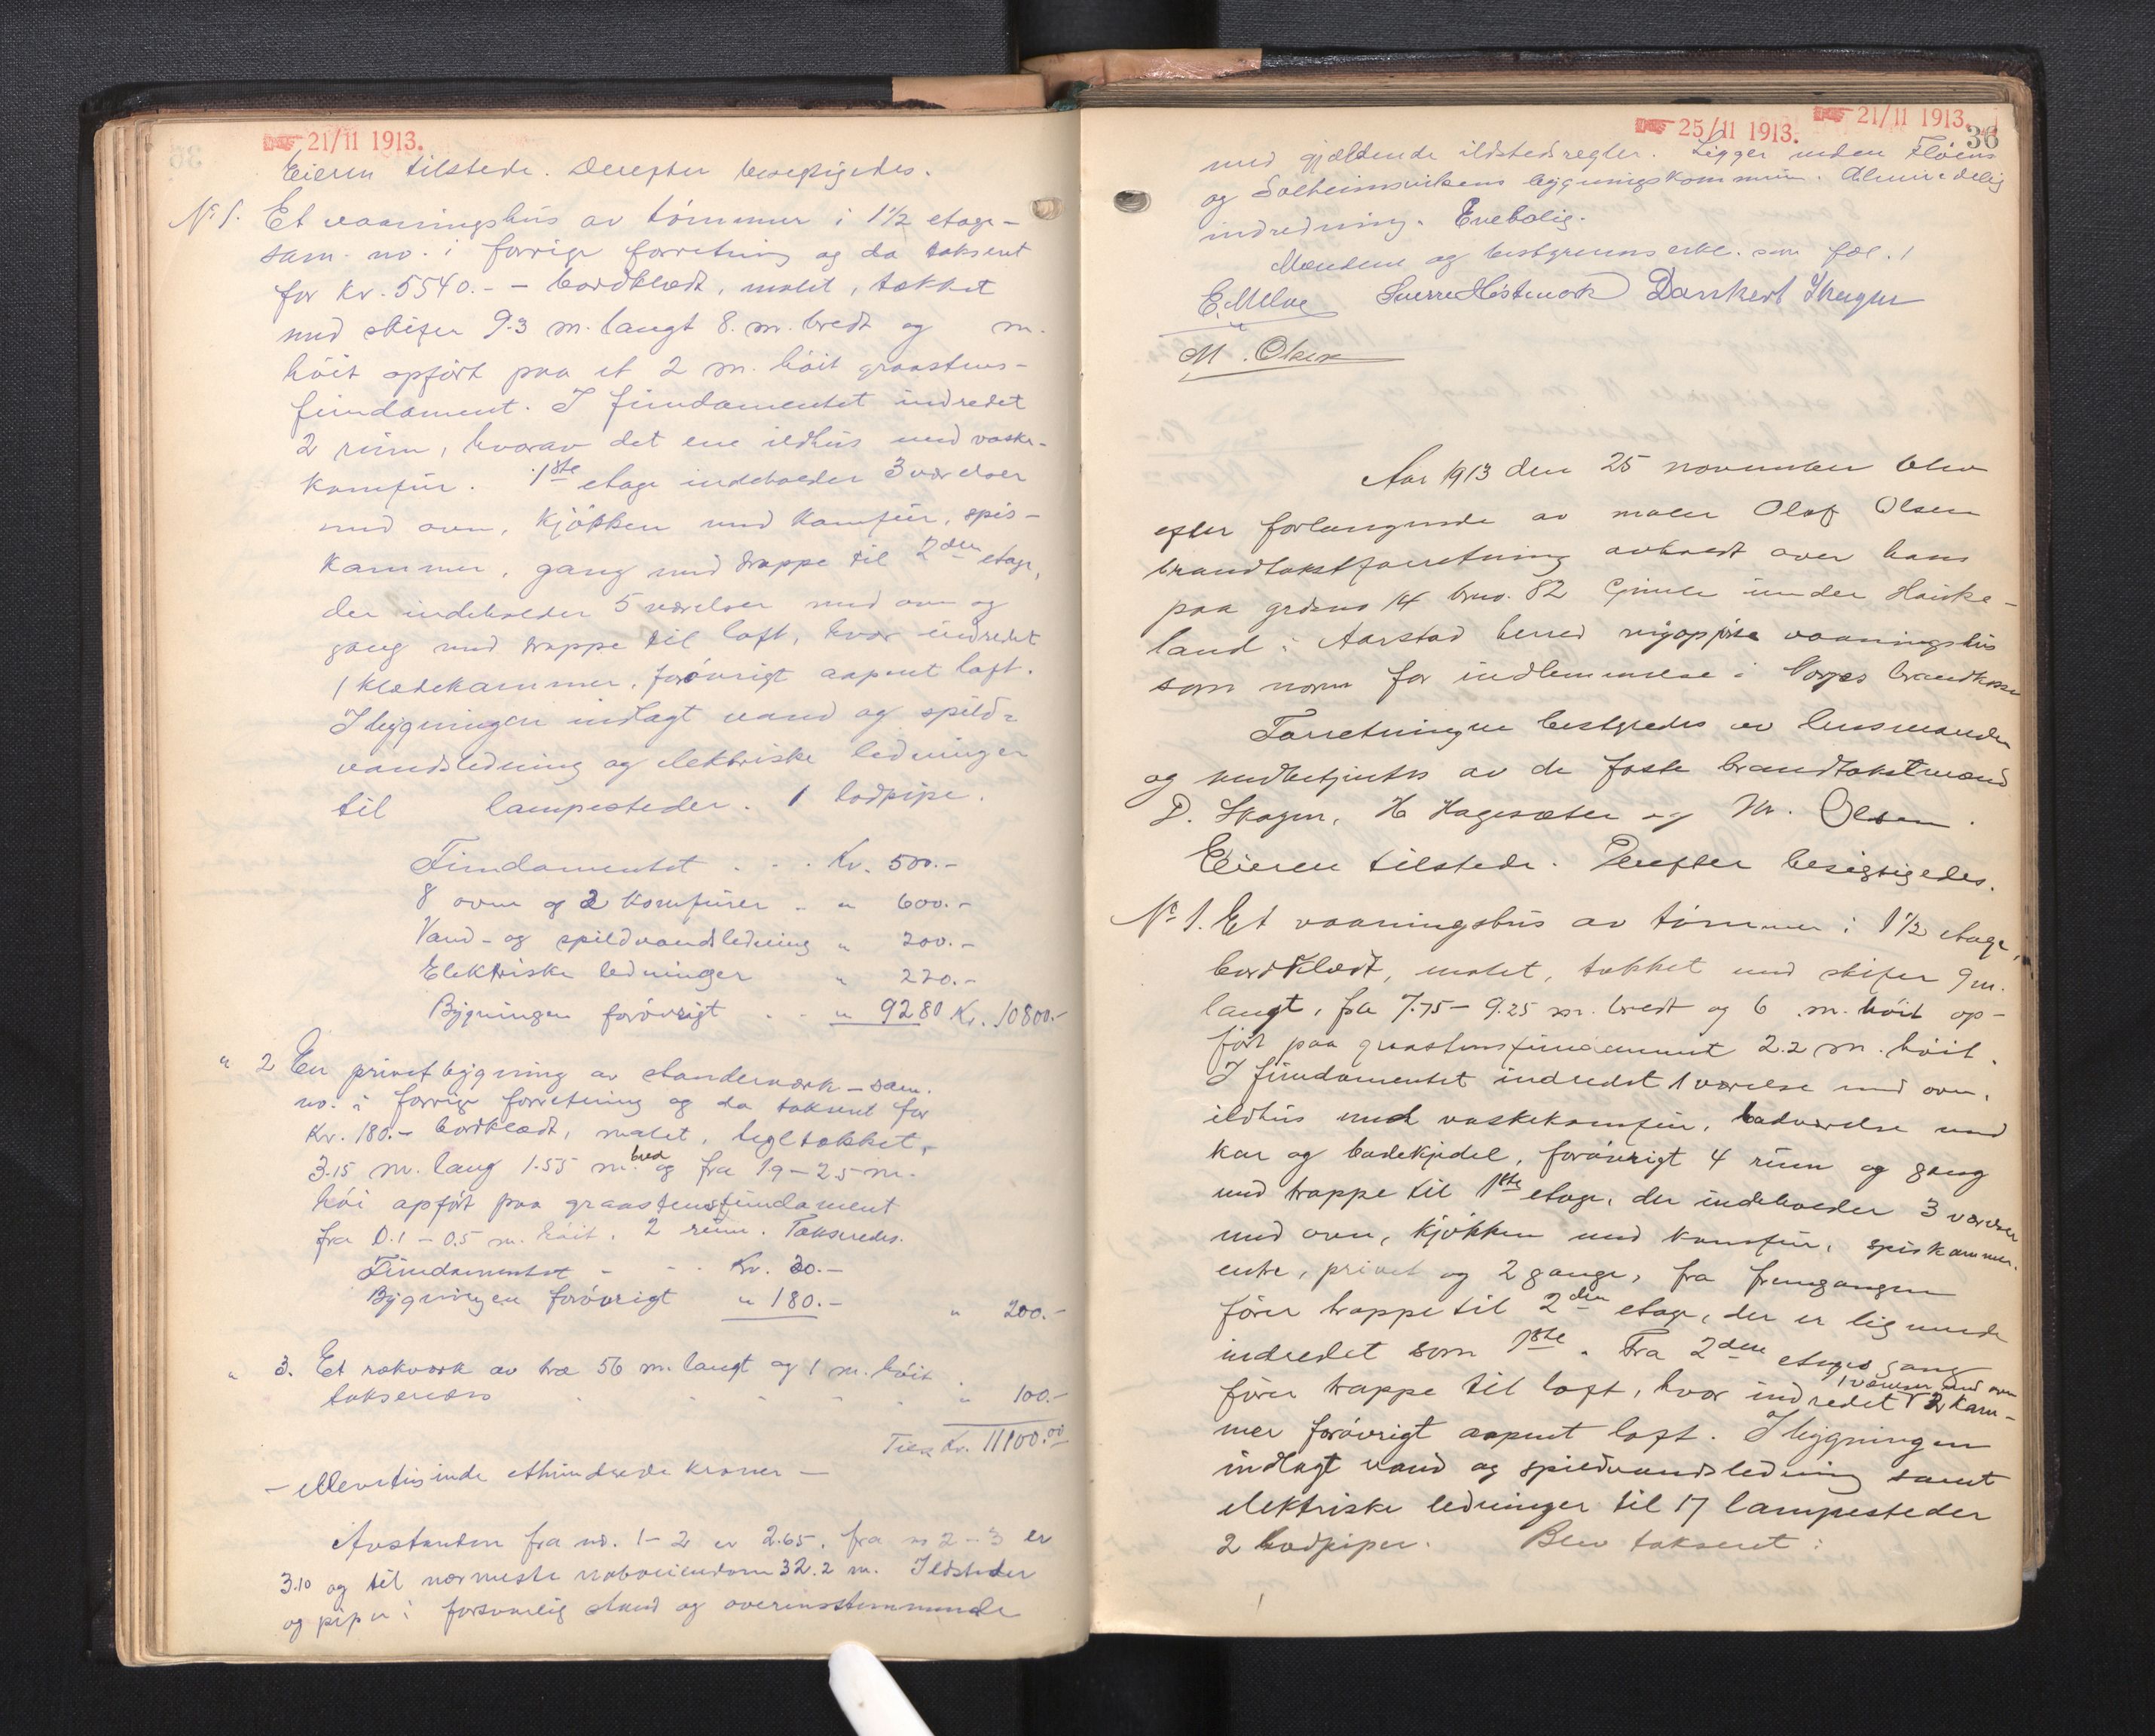 21/11 1913.
Eieren tilstede. Derefter besigtigedes.
No 1. Et vaaningshus av tömmer i 1 1/2 etage -
sam. no. i forrige forretning og da taksert
for kr. 5540.- - bordklædt, malet, tækket
med skifer 9.3 m. langt 8. m. bredt og m.
höit opfört paa et 2 m. höit graastens-
fundament. I fundamentet indredet
2 rum, hvorav det ene ildhus med vaske-
komfur. 1ste etage indeholder 3 værelser
med ovn, kjökken med komfur, spis-
kammer, gang med trappe til 2den etage,
der indeholder 5 værelser med ovn og
gang med trappe til loft, hvor indredet
1 klædekammer, forövrigt aapent loft.
I bygningen indlagt vand og spild-
vandsledning og elektriske ledninger
til lampesteder. 1 lodpipe.
Fundamentet . . . Kr. 500.-
8 ovne og 2 komfurer . " 600.-
Vand- og spildvandsledning " 200.-
Elektriske ledninger " 220.-
Bygningen forövrigt . . " 9280 Kr. 10800.-
" 2 En privetbygning av standerværk - sam.
no. i forrige forretning og da taksert for
Kr. 180.- bordklædt, malet, tegltækket,
3.15 m. lang 1.55 m. bred og fra 1.9 - 2.5 m.
höi opfört paa graastensfundament
fra 0.1 - 0.5 m. höit. 2 rum. Takseredes.
Fundamentet - - - Kr. 20.-
Bygningen forövrigt " 180.- " 200.-
" 3. Et rækværk av træ 56 m. langt og 1 m. höit
takseredes . . - - . " 100.-
Tils. Kr. 11100.00
- ellevetusinde ethundrede kroner -
Avstanden fra no. 1 - 2 er 2.65, fra no 2 - 3 er
3.10 og til nærmeste naboeiendom 32.2 m. Ildsteder
og piper i forsvarlig stand og overensstemmende
25/11 1913. 21/11 1913.
36
med gjældende ildstedsregler. Ligger uden Flöens
og Solheimsvikens bygningskommune. Almindelig
indredning. Enebolig.
Mændene og bestyrerens erkl. som fol. 1
E. Melve Sverre Höstmark Dankert Skagen
M. Olsen
Aar 1913 den 25 november blev
efter forlangende av maler Olaf Olsen
brandtakstforretning avholdt over hans
paa grdsno 14 brno. 82 Gimle under Hauke-
land i Aarstad herred nyopförte vaaningshus
som norm for indlemmelse i Norges brandkasse
Forretningen bestyredes av lensmanden
og medbetjentes av de faste brandtakstmænd
D. Skagen, H Hagesæter og M. Olsen.
Eieren tilstede. Derefter besigtigedes.
No 1. Et vaaningshus av tömmer i 1 1/2 etage,
bordklædt, malet, tækket med skifer 9 m.
langt, fra 7.75 - 9.25 m. bredt og 6 m. höit op-
fört paa graastensfundament 2.2 m. höit.
I fundamentet indredet 1 værelse med ovn,
ildhus med vaskekomfur, badværelse med
kar og badekjedel, forövrigt 4 rum og gang
med trappe til 1ste etage, der indeholder 3 værelser
med ovn, kjökken med komfur, spiskammer,
entre, privet og 2 gange, fra fremgangen
förer trappe til 2den etage, der er lignende
indredet som 1ste. Fra 2den etages gang
förer trappe til loft, hvor indredet 1 værelse med ovn 2 kam-
mer forövrigt aapent loft. I bygningen
indlagt vand og spildvandsledning samt
elektriske ledninger til 17 lampesteder
2 lodpiper. Blev taksert: